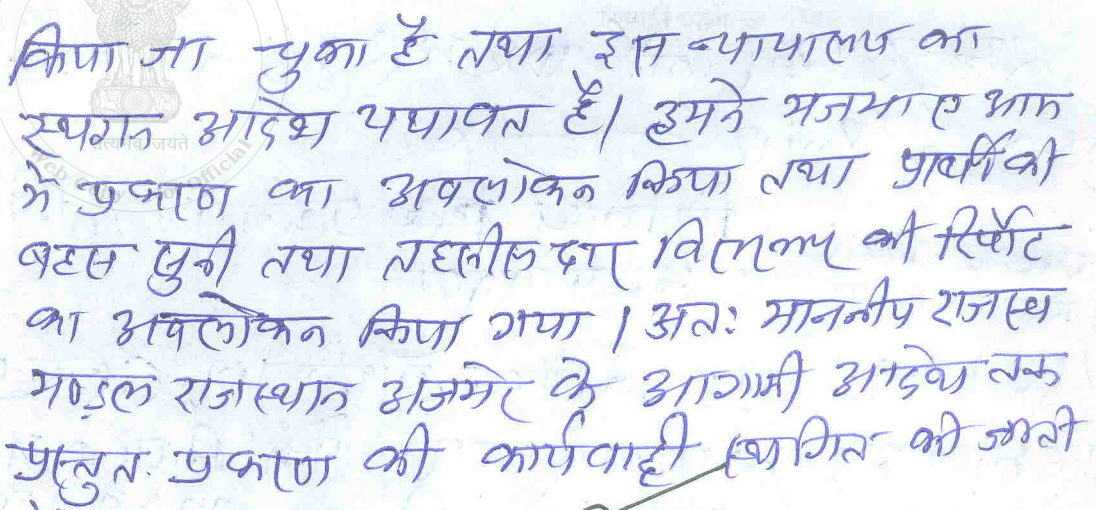 किया जा चुका है तथा इस न्यायालय का
स्थगन आदेश यथावत है। हमने मजमाए आम
मे प्रकरण का अवलोकन किया तथा प्रार्थी की
बहस सुनी तथा तहसीलदार की रिर्पोट
का अवलोकन किया गया। अतः माननीय राजस्व
मण्डल राजस्थान अजमेर के आगामी आदेश तक
प्रस्तुत प्रकरण की कार्यवाही स्थगित की जाती